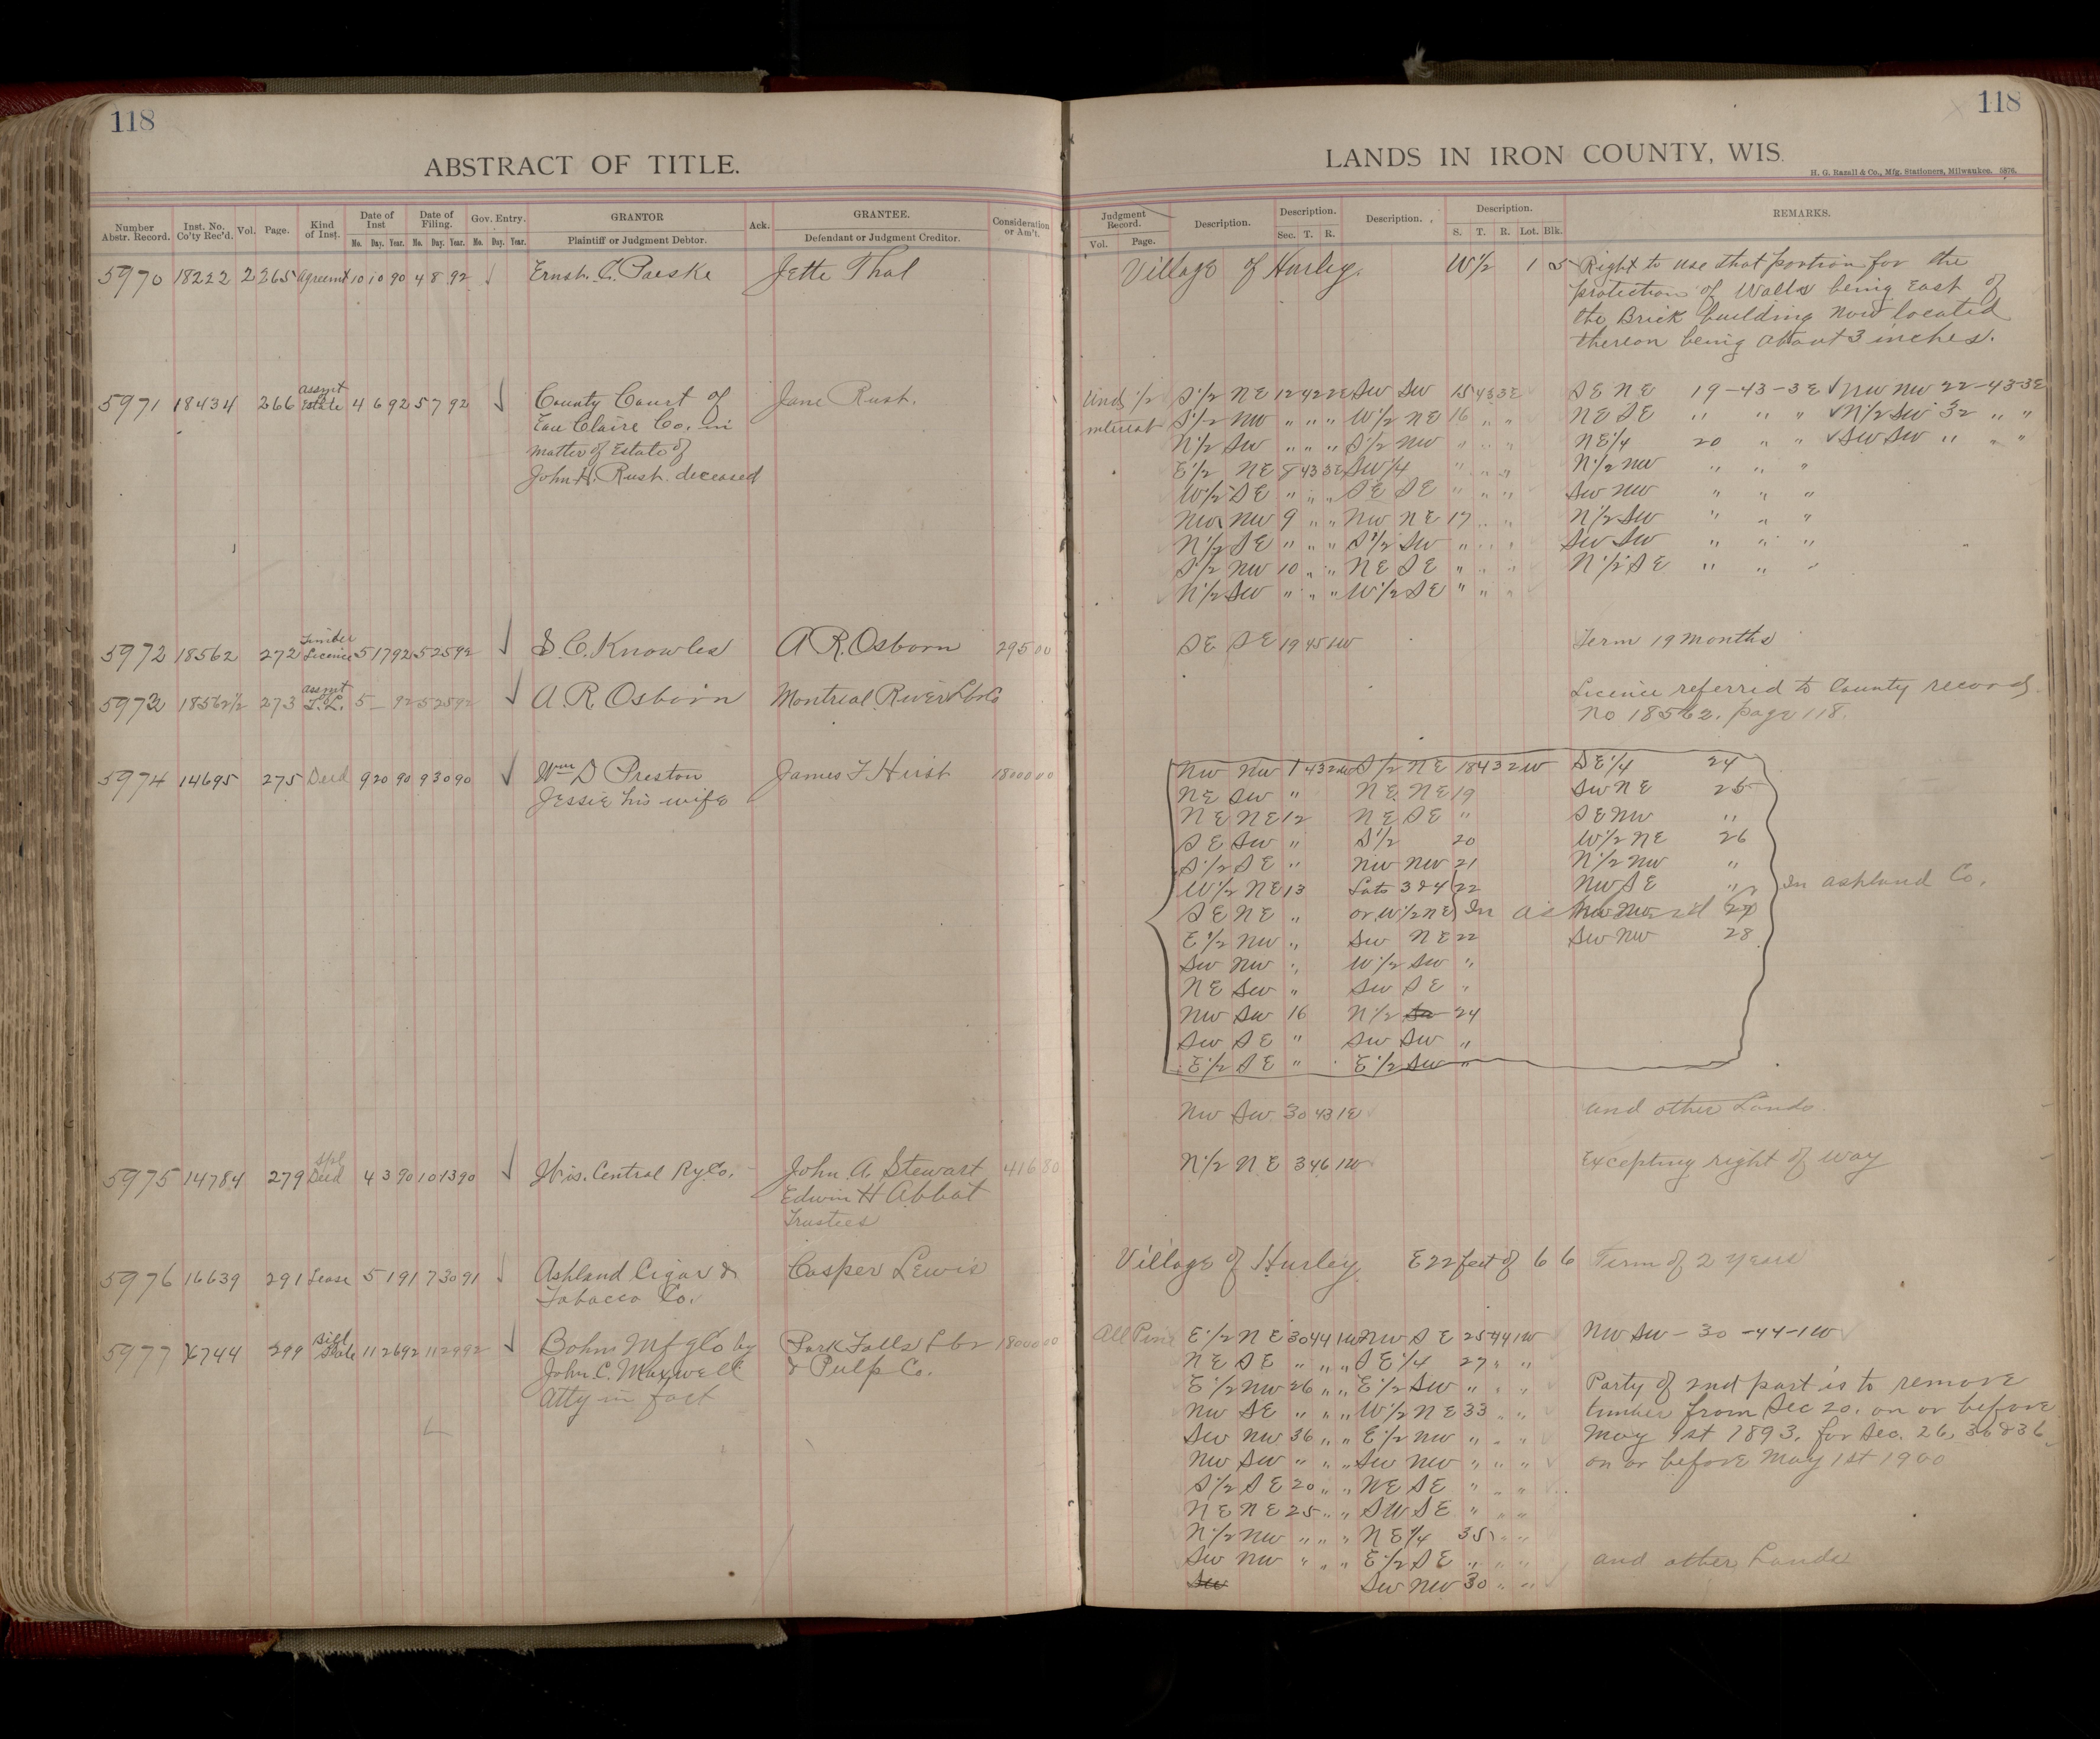 118
ABSTRACT OF TITLE.
Number Abstr. Record. Inst. No. Co'ty Rec'd. Vol. Page. Kind of Inst. Date of Inst Mo. Day. Year. Date of Filing. Mo. Day. Year. Gov. Entry. Mo. Day. Year. GRANTOR Plaintiff or Judgment Debtor. Ack. GRANTEE. Defendant or Judgment Creditor. Consideration or Am't.
5970 18222 2 265 Agreemt 10 10 90 4 8 92 Ernst. C. Paeske Jette Thal
5971 18434 266 Assmt Estate 4 6 92 5 7 92 County Court of Jane Rust.
Eau Claire Co. in
matter of Estate of
John H. Rust. deceased
5972 18562 272 Timber Licence 5 17 92 5 25 92 S. C. Knowles A R. Osborn 295 00
5973 18562 1/2 273 Assmt T.L. 5 — 92 5 25 92 A. R. Osborn Montreal River Lbr Co
5974 14695 275 Deed 9 20 90 9 30 90 Wm D Preston James F Hirst 18000 00
Jessie his wife
5975 14784 279 Spl Deed 4 3 90 10 13 90 Wis. Central Ry Co. John A. Stewart 416 80
Edwin H Abbot
Trustees
5976 16639 291 Lease 5 1 91 7 30 91 Ashland Cigar & Casper Lewis
Tobacco Co.
5977 299 Bill Sale 11 26 92 11 29 92 Bohn Mfg Co by Park Falls Lbr 18000 00
John. C. Maxwell & Pulp Co.
Atty in fact
118
LANDS IN IRON COUNTY, WIS.
H. G. Razall & Co., Mfg. Stationers, Milwaukee. 5976.
Judgment Record. Vol. Page. Description. Description. Sec. T. R. Description. Description. S. T. R. Lot. Blk. REMARKS.
Village of Hurley. W 1/2 1 5 Right to use that portion for the
protection of Walls being East of
the Brick building now located
thereon being about 3 inches.
Und 1/2 S 1/2 NE 12 42 2E SW SW 15 43 3E SE NE 19-43-3E NW NW 22-43-3E
interest S 1/2 NW " " " W 1/2 NE 16 " " NE SE " " " N 1/2 SW 32 " "
N 1/2 SW " " " S 1/2 NW " " " NE 1/4 20 " " SW SW " " "
E 1/2 NE 8 43 3E SW 1/4 " " " N 1/2 NW " " "
W 1/2 SE " " " SE SE " " " SW NW " " "
NW NW 9 " " NW NE 17 " " N 1/2 SW " " "
N 1/2 SE " " " S 1/2 SW " " " SW SW " " "
S 1/2 NW 10 " " NE SE " " " N 1/2 SE " " "
N 1/2 SW " " " W 1/2 SE " " "
SE SE 19 45 1W Term 19 Months
Licence referred to County records
No 18562. page 118.
NW NW 1 43 2W S 1/2 NE 18 43 2W SE 1/4 24
NE SW " NE NE 19 SW NE 25
NE NE 12 NE SE " SE NW "
SE SW " S 1/2 20 W 1/2 NE 26
S 1/2 SE " NW NW 21 N 1/2 NW "
W 1/2 NE 13 Lots 3 & 4 22 NW SE " In Ashland Co.
SE NE " or W 1/2 NE In NW NW 27
E 1/2 NW " SW NE 22 SW NW 28
SW NW " W 1/2 SW "
NE SW " SW SE "
NW SW 16 N 1/2 24
SW SE " SW SW "
E 1/2 SE " E 1/2 SW "
NW SW 30 43 1E and other Lands
N 1/2 NE 3 46 1W Excepting right of way
Village of Hurley E 22 feet of 6 6 Term of 2 Years
All Pine E 1/2 NE 30 44 1W NW SE 25 44 1W NW SW - 30 - 44 - 1W
NE SE " " " SE 1/4 27 " "
E 1/2 NW 26 " " E 1/2 SW " " " Party of 2nd part is to remove
NW SE " " " W 1/2 NE 33 " " timber from Sec 20. on or before
SW NW 36 " " E 1/2 NW " " " May 1st 1893. for Sec. 26, 36 & 36
NW SW " " " SW NW " " " on or before May 1st 1900
S 1/2 SE 20 " " NE SE " " "
NE NE 25 " " SW SE " " "
N 1/2 NW " " " NE 1/4 35 " "
SW NW " " " E 1/2 SE " " " and other Lands
SW NW 30 " "